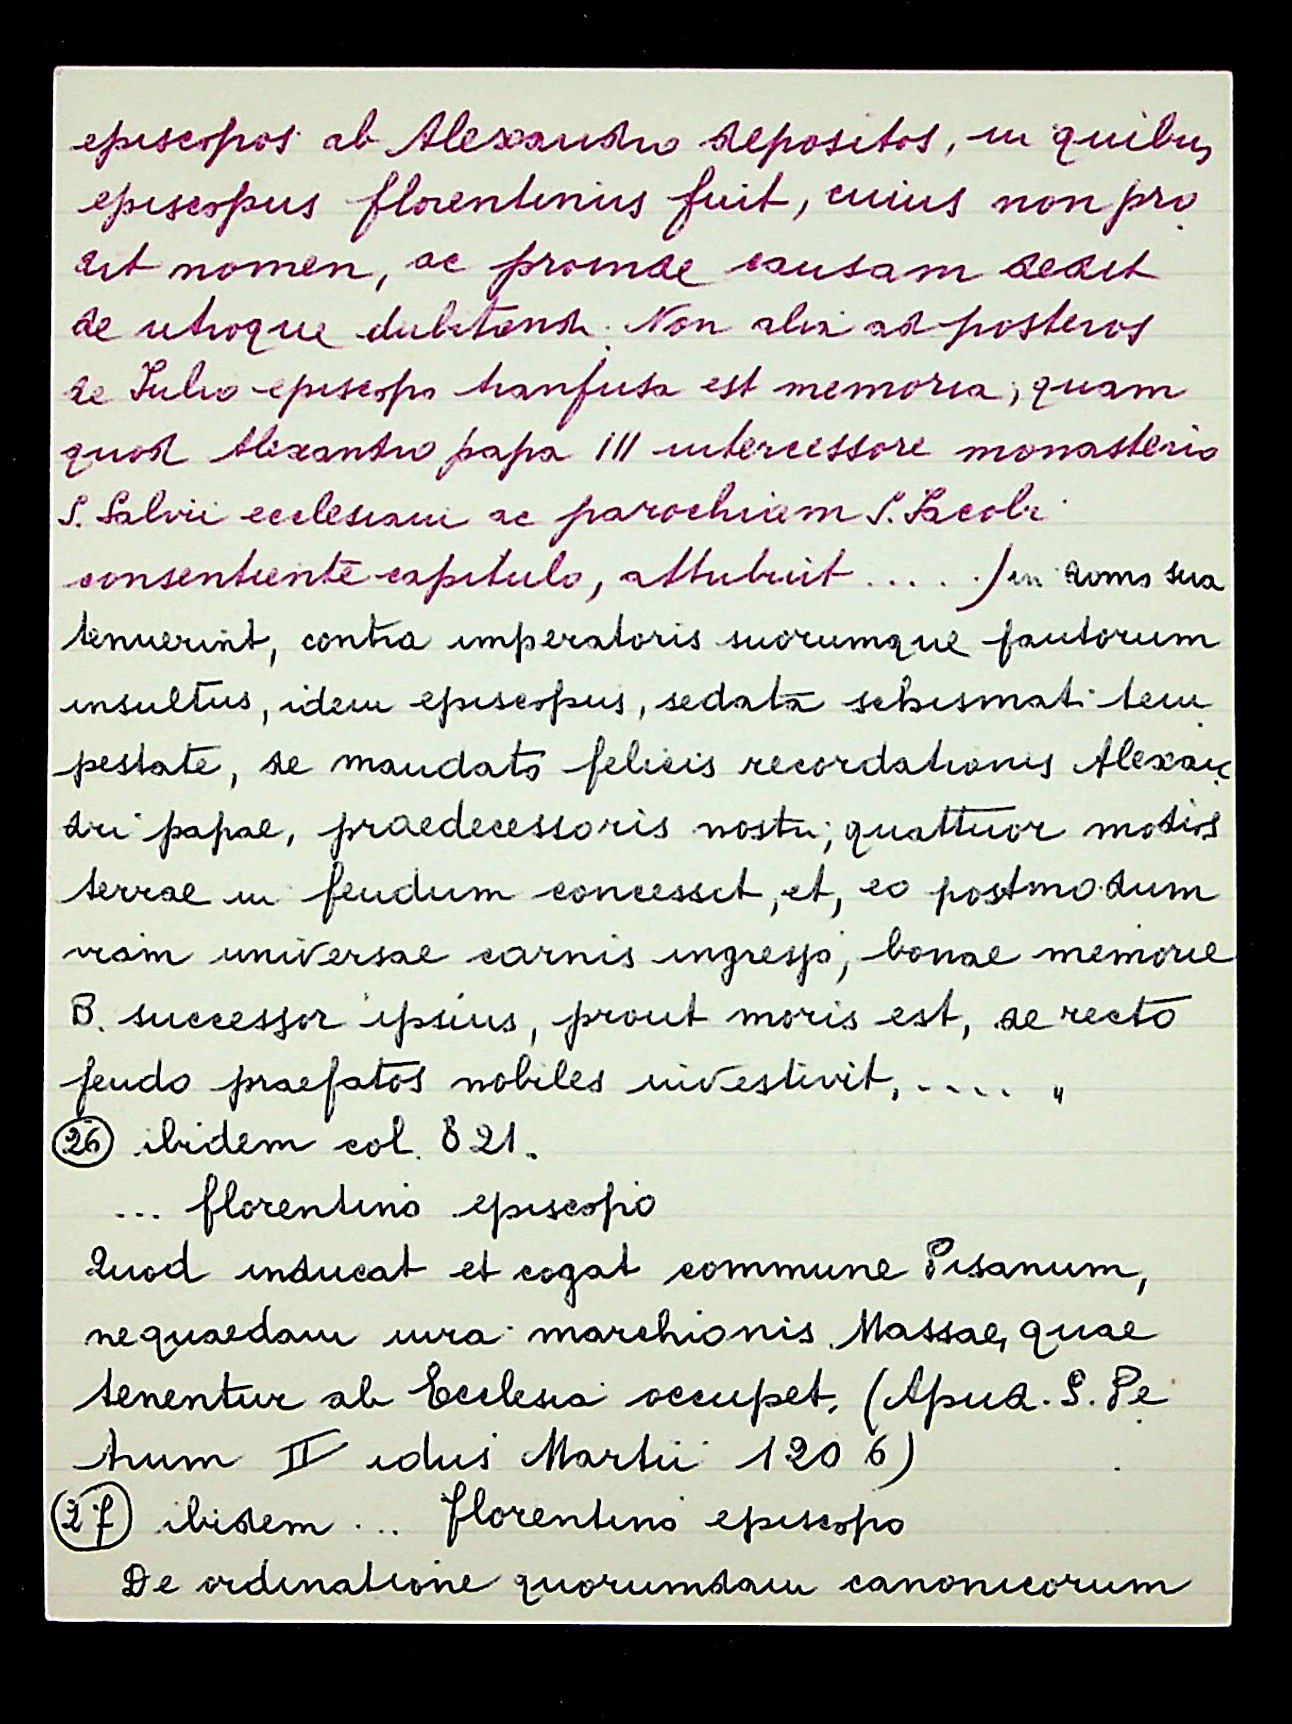 episcopos ab Alexandro depositos, in quibus
episcopus florentinus fuit, cuius non pro
dit nomen, ac proinde causam dedit
de utroque dubitandi. Non alia ad posteros
de Iulio episcopo tranfusa est memoria, quam
quod Alexandro papa III intercessore monasterio
S. Salvii ecclesiam ac parochiam S. Iacobi
consentiente capitulo, attribuit .....) in domo sua
tenuerint, contra imperatoris suorumque fautorum
insultus, idem episcopus, sedata schismati tem
pestate, de mandato felicis recordationis Alexan
dri papae, praedecessoris nostri, quattuor modios
terrae in feudum concessit, et, eo postmodum
viam universae carnis ingresso, bonae memorie
B. successor ipsius, prout moris est, de recto
feudo praefatos nobiles investivit, .... "
26 ibidem col. 821.
... florentino episcopo
Quod inducat et cogat commune Pisanum,
ne quaedam iura marchionis Massae, quae
tenentur ab Ecclesia occupet. (Apud. S. Pe
trum IV idus Martii 1206)
27 ibidem ... florentino episcopo
De ordinatione quorumdam canonicorum